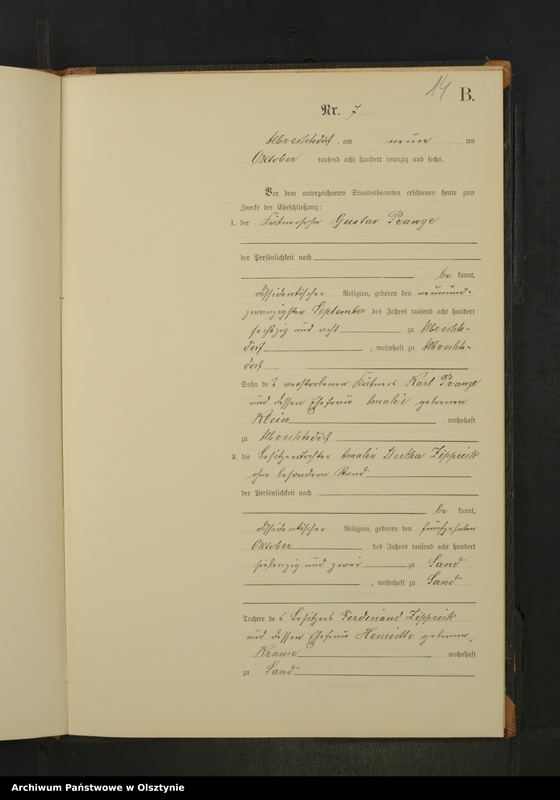 14 B.
Nr. 7
Albrechtsdorf, am neun ten
Oktober tausend acht hundert neunzig und sechs.
Vor dem unterzeichneten Standesbeamten erschienen heute zum
Zwecke der Eheschließung:
1. der Kätnersohn Gustav Prange
der Persönlichkeit nach
be kannt,
dissidentischer Religion, geboren den neunund-
zwanzigsten September des Jahres tausend acht hundert
sechzig und acht zu Albrechts-
dorf, wohnhaft zu Albrechts-
dorf
Sohn des verstorbenen Kätners Karl Prange
und dessen Ehefrau Amalie geborenen
Klein wohnhaft
zu Albrechtsdorf
2. die Besitzertochter Amalia Bertha Zipprick
ohne besondern Stand
der Persönlichkeit nach
be kannt,
dissidentischer Religion, geboren den fünfzehnten
Oktober des Jahres tausend acht hundert
siebenzig und zwei zu Sand
, wohnhaft zu Sand
Tochter des Besitzers Ferdinand Zipprick
und dessen Ehefrau Henriette geborenen
Krause wohnhaft
zu Sand
Archiwum Państwowe w Olsztynie